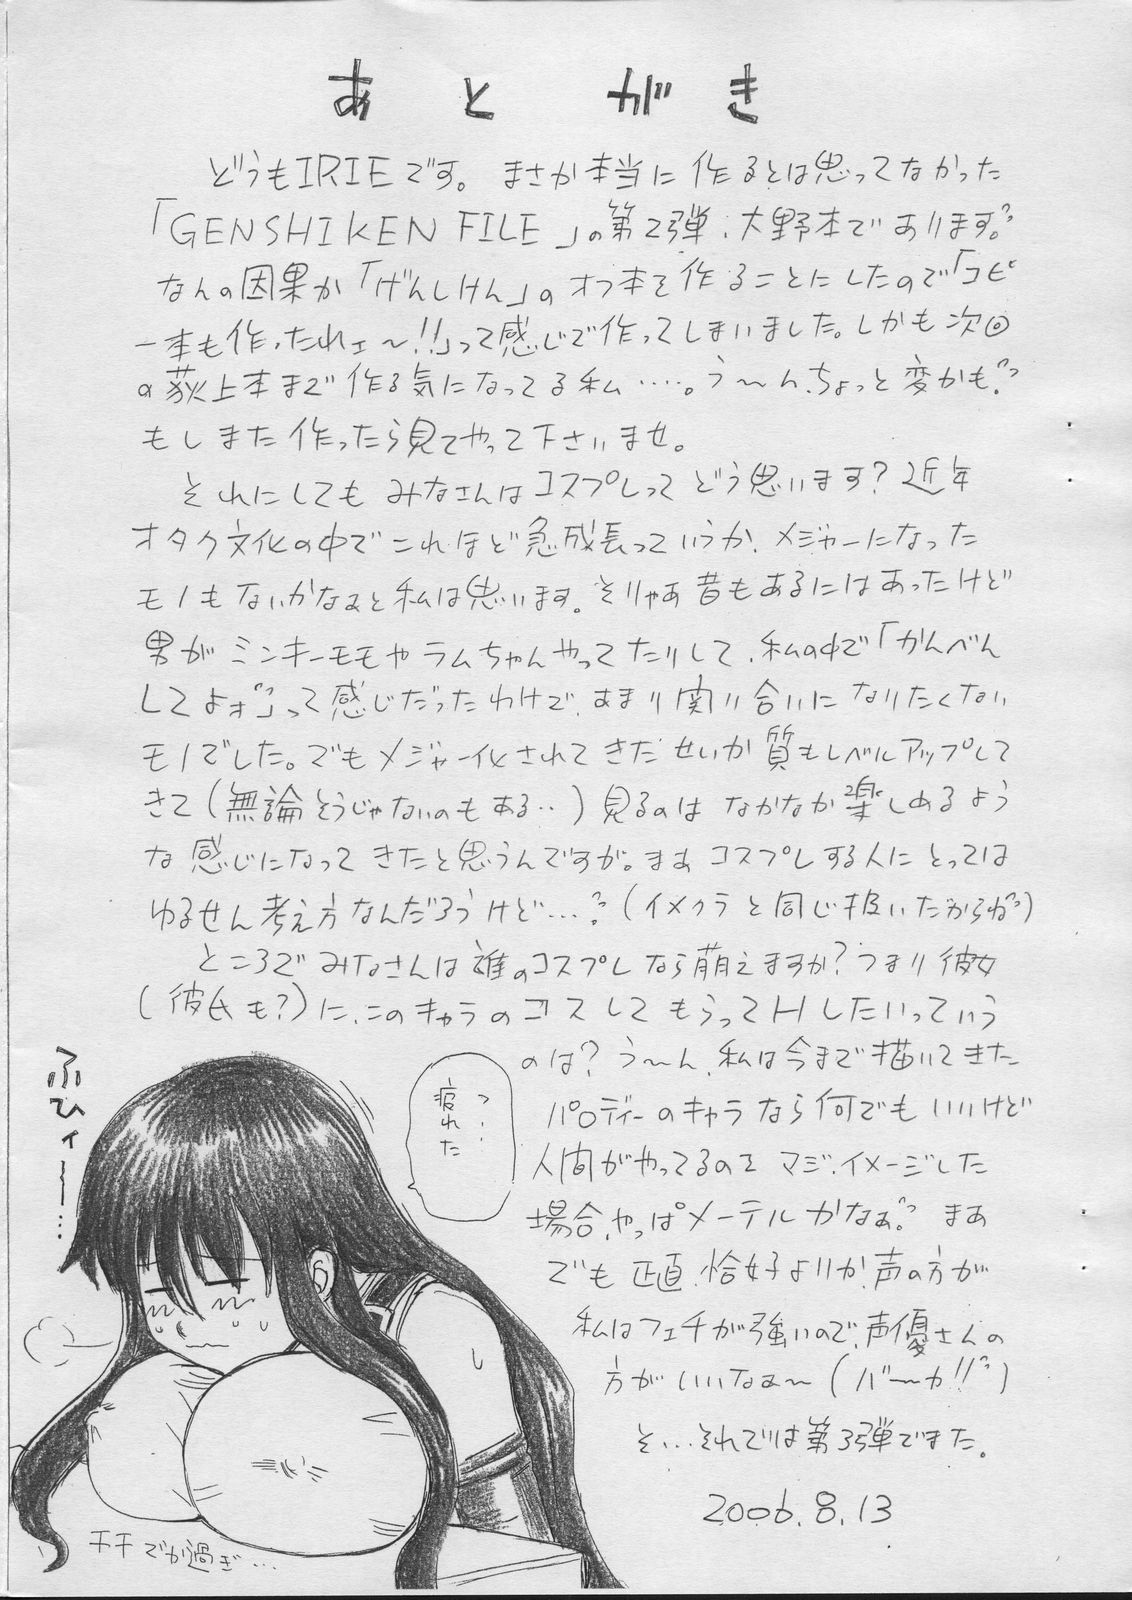 あとがき
どうもIRIEです。まさか本当に作るとは思ってなかった
「GENSHIKEN FILE」の第2弾、大野本であります。
なんの因果か「げんしけん」のオフ本を作ることにしたので「コピ
ー本も作ったれェ〜!!」って感じで作ってしまいました。しかも次回
の荻上本まで作る気になってる私……。う〜ん、ちょっと変かも?
もしまた作ったら見てやって下さいませ。
それにしてもみなさんはコスプレってどう思います?近年
オタク文化の中でこれほど急成長っていうか、メジャーになった
モノもないかなぁと私は思います。そりゃあ昔もあるにはあったけど
男がミンキーモモやラムちゃんやってたりして、私の中で「かんべん
してよォ」って感じだったわけで、あまり関り合いになりたくない
モノでした。でもメジャー化されてきたせいか質もレベルアップして
きて(無論そうじゃないのもある‥)見るのはなかなか楽しめるよう
な感じになってきたと思うんですが。まあコスプレする人にとっては
ゆるせん考え方なんだろうけど…?(イメクラと同じ扱いだからね)
ところでみなさんは誰のコスプレなら萌えますか?つまり彼女
(彼氏も?)に、このキャラのコスしてもらってHしたいっていう
のは?う〜ん、私は今まで描いてきた
パロディーのキャラなら何でもいいけど
人間がやってるのをマジ、イメージした
場合、やっぱメーテルかなぁ。まあ
でも正直、恰好よりか声の方が
私はフェチが強いので、声優さんの
方がいいなぁ〜(バーカ!!)
そ…それでは第3弾でまた。
2006.8.13
ふひィー…
つ…
疲れた
チチでか過ぎ…